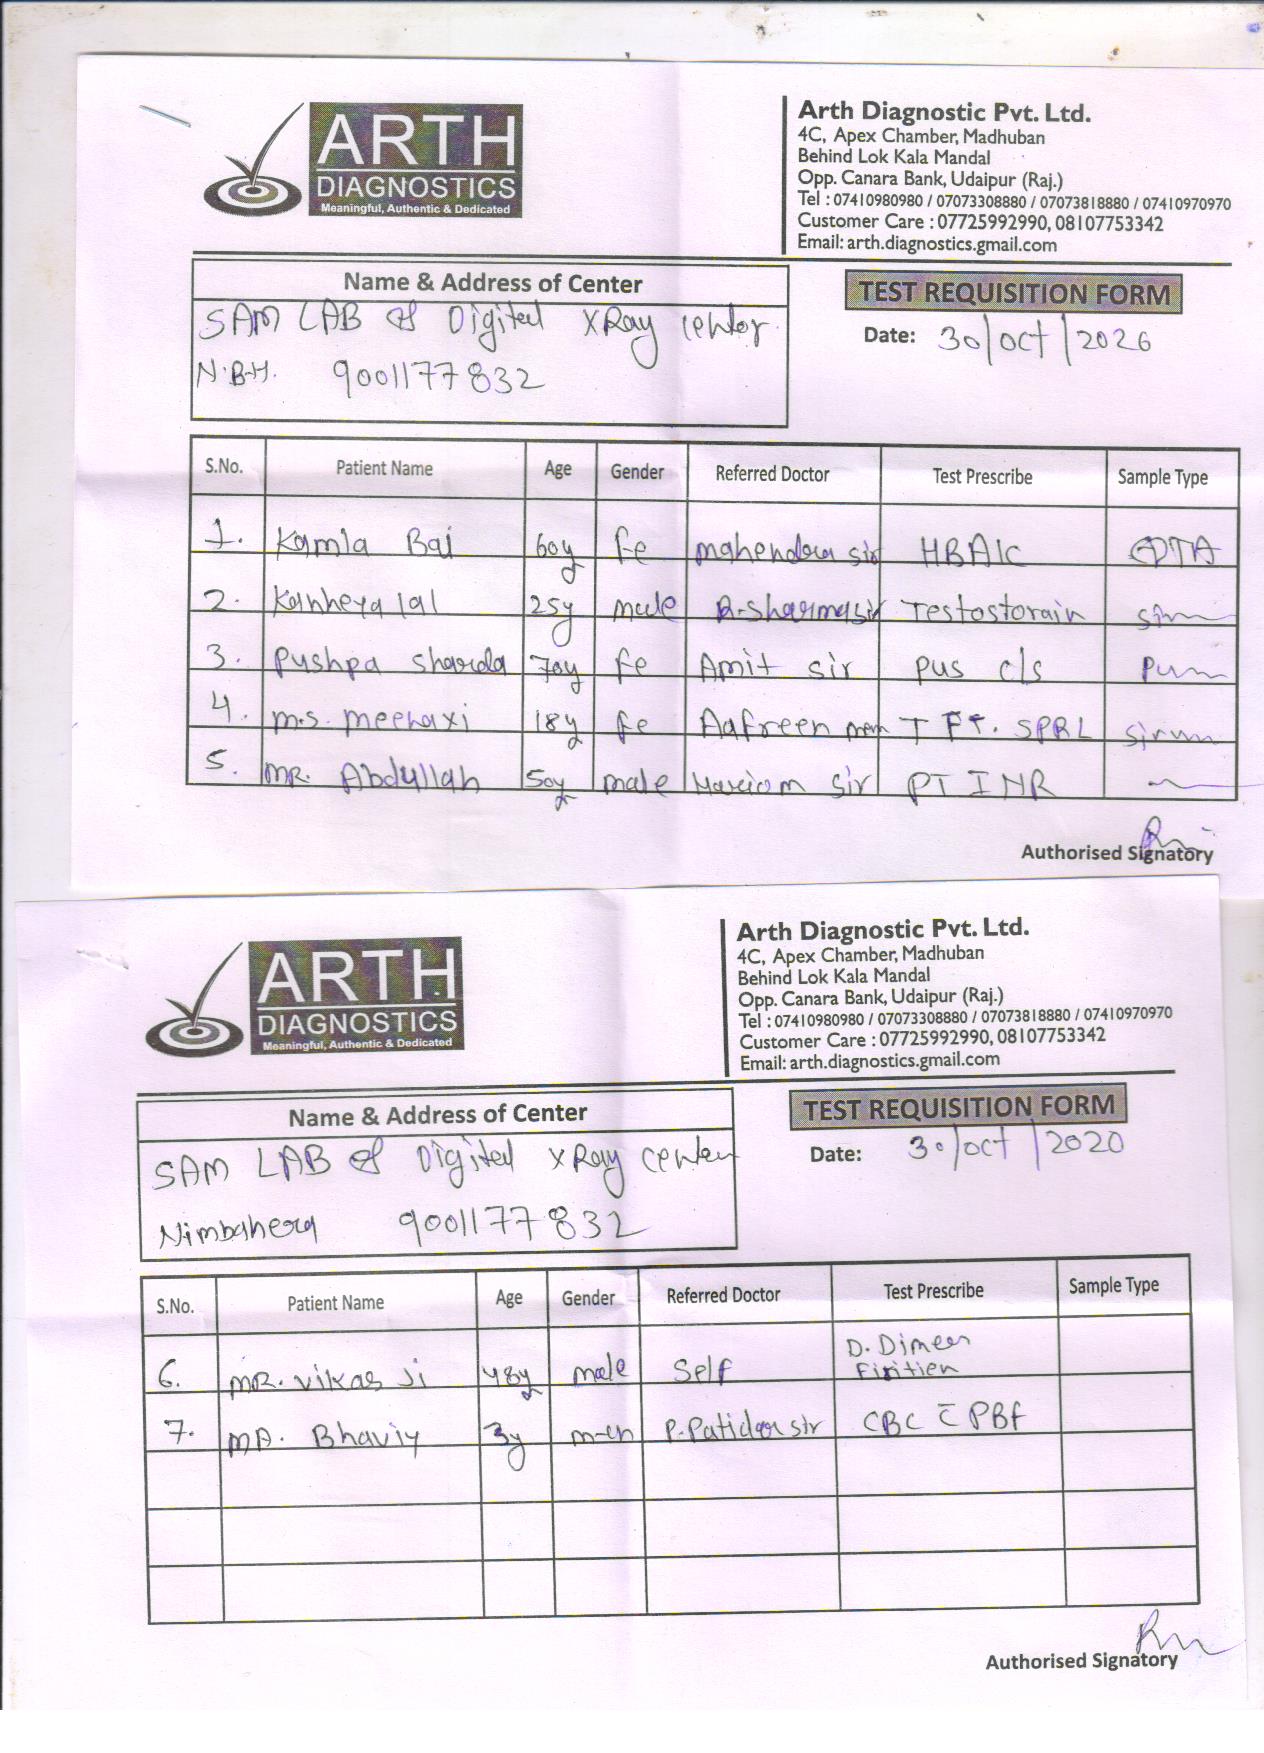 ARTH
DIAGNOSTICS
Meaningful, Authentic & Dedicated
Arth Diagnostic Pvt. Ltd.
4C, Apex Chamber, Madhuban
Behind Lok Kala Mandal
Opp. Canara Bank, Udaipur (Raj.)
Tel : 07410980980 / 07073308880 / 07073818880 / 07410970970
Customer Care : 07725992990, 08107753342
Email: arth.diagnostics.gmail.com
Name & Address of Center
SAM LAB & Digital XRay center
N.B.H. 9001177832
TEST REQUISITION FORM
Date: 30/oct/2020
S.No. Patient Name Age Gender Referred Doctor Test Prescribe Sample Type
1. Kamla Bai 60y fe mahendra sir HBA1C EDTA
2. Kanheya lal 25y male R.sharma sir Testostorain
3. Pushpa sharda 70y fe Amit sir pus c/s pus
4. m.s. meenaxi 18y fe Aafreen mem T F T. SPRL
5. MR. Abdullah 50y male sir PT INR
Authorised Signatory
ARTH
DIAGNOSTICS
Meaningful, Authentic & Dedicated
Arth Diagnostic Pvt. Ltd.
4C, Apex Chamber, Madhuban
Behind Lok Kala Mandal
Opp. Canara Bank, Udaipur (Raj.)
Tel : 07410980980 / 07073308880 / 07073818880 / 07410970970
Customer Care : 07725992990, 08107753342
Email: arth.diagnostics.gmail.com
Name & Address of Center
SAM LAB & Digital XRay center
Nimbahera 9001177832
TEST REQUISITION FORM
Date: 30/oct/2020
S.No. Patient Name Age Gender Referred Doctor Test Prescribe Sample Type
D. Dimer
6. MR. Vikas Ji 48y male Self
7. MA. Bhaviy 3y P.Patidar sir CBC c̅ PBF
Authorised Signatory